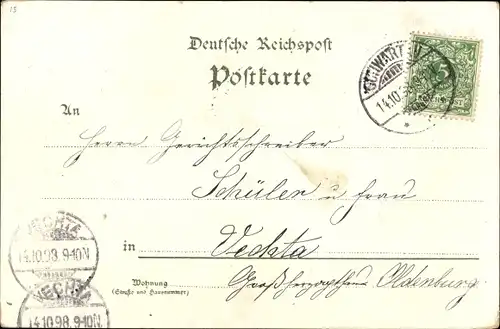 15
Deutsche Reichspost
Postkarte
SCHWARTAU
14.10.98
5
An
Herrn Gerichtsschreiber
Schüler u. Frau
in Vechta
Wohnung
(Straße und Hausnummer)
Großherzogthum Oldenburg
VECHTA
14.10.98. 9-10N
VECHTA
14.10.98. 9-10N.